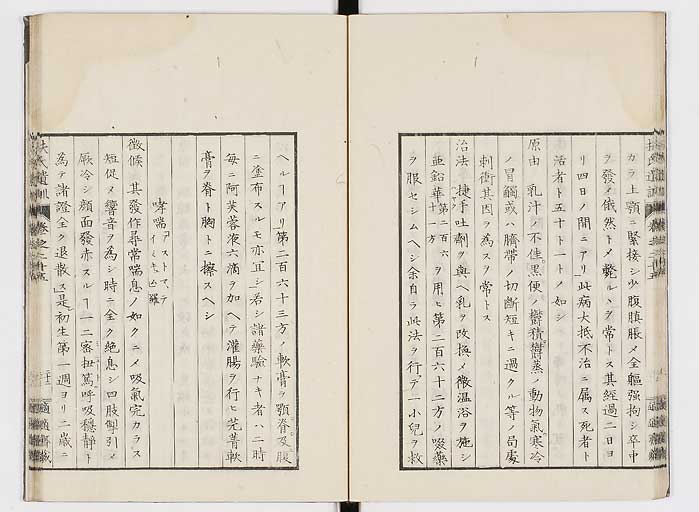 カラ上顎ニ緊接シ少腹膨脹メ全軀强拘シ卒中
ヲ發メ倏然トメ斃ルヽヲ常トス其經過二日ヨ
リ四日ノ間ニアリ此病大抵不治ニ属ス死者ト
活者ト五十ト一トノ如シ
原由 乳汁ノ不佳黒便ノ鬱積鬱蒸ノ動物氣寒冷
ノ冒觸或ハ臍帶ノ切斷短キニ過クル等ノ局處
刺衝其因ヲ為スヲ常トス
治法 捷手吐劑ヲ與ヘ乳ヲ改換メ微温浴ヲ施シ
亜鉛華第二百六十一方ヲ用ヒ第二百六十二方ノ啜藥
ヲ服セシムヘシ余自ラ此法ヲ行テ一小兒ヲ救
ヘルヿアリ第二百六十三方ノ軟膏ヲ顎脊及腹
ニ塗布スルモ亦宜シ若シ諸藥驗ナキ者ハ二時
毎ニ阿芙蓉液六滴ヲ加ヘテ灌腸ヲ行ヒ芫菁軟
膏ヲ脊ト胸トニ擦スヘシ
哮喘
徴候 其發作尋常喘息ノ如クニメ吸氣完カラス
短促メ響音ヲ為シ時ニ全ク絶息シ四肢搐引メ
厥冷シ顔面發赤スルヿ一二密扭篤呼吸穩静ト
為テ諸證全ク退散ス是初生第一週ヨリ二歳ニ
扶氏遺訓 卷之二十五
適適齋藏